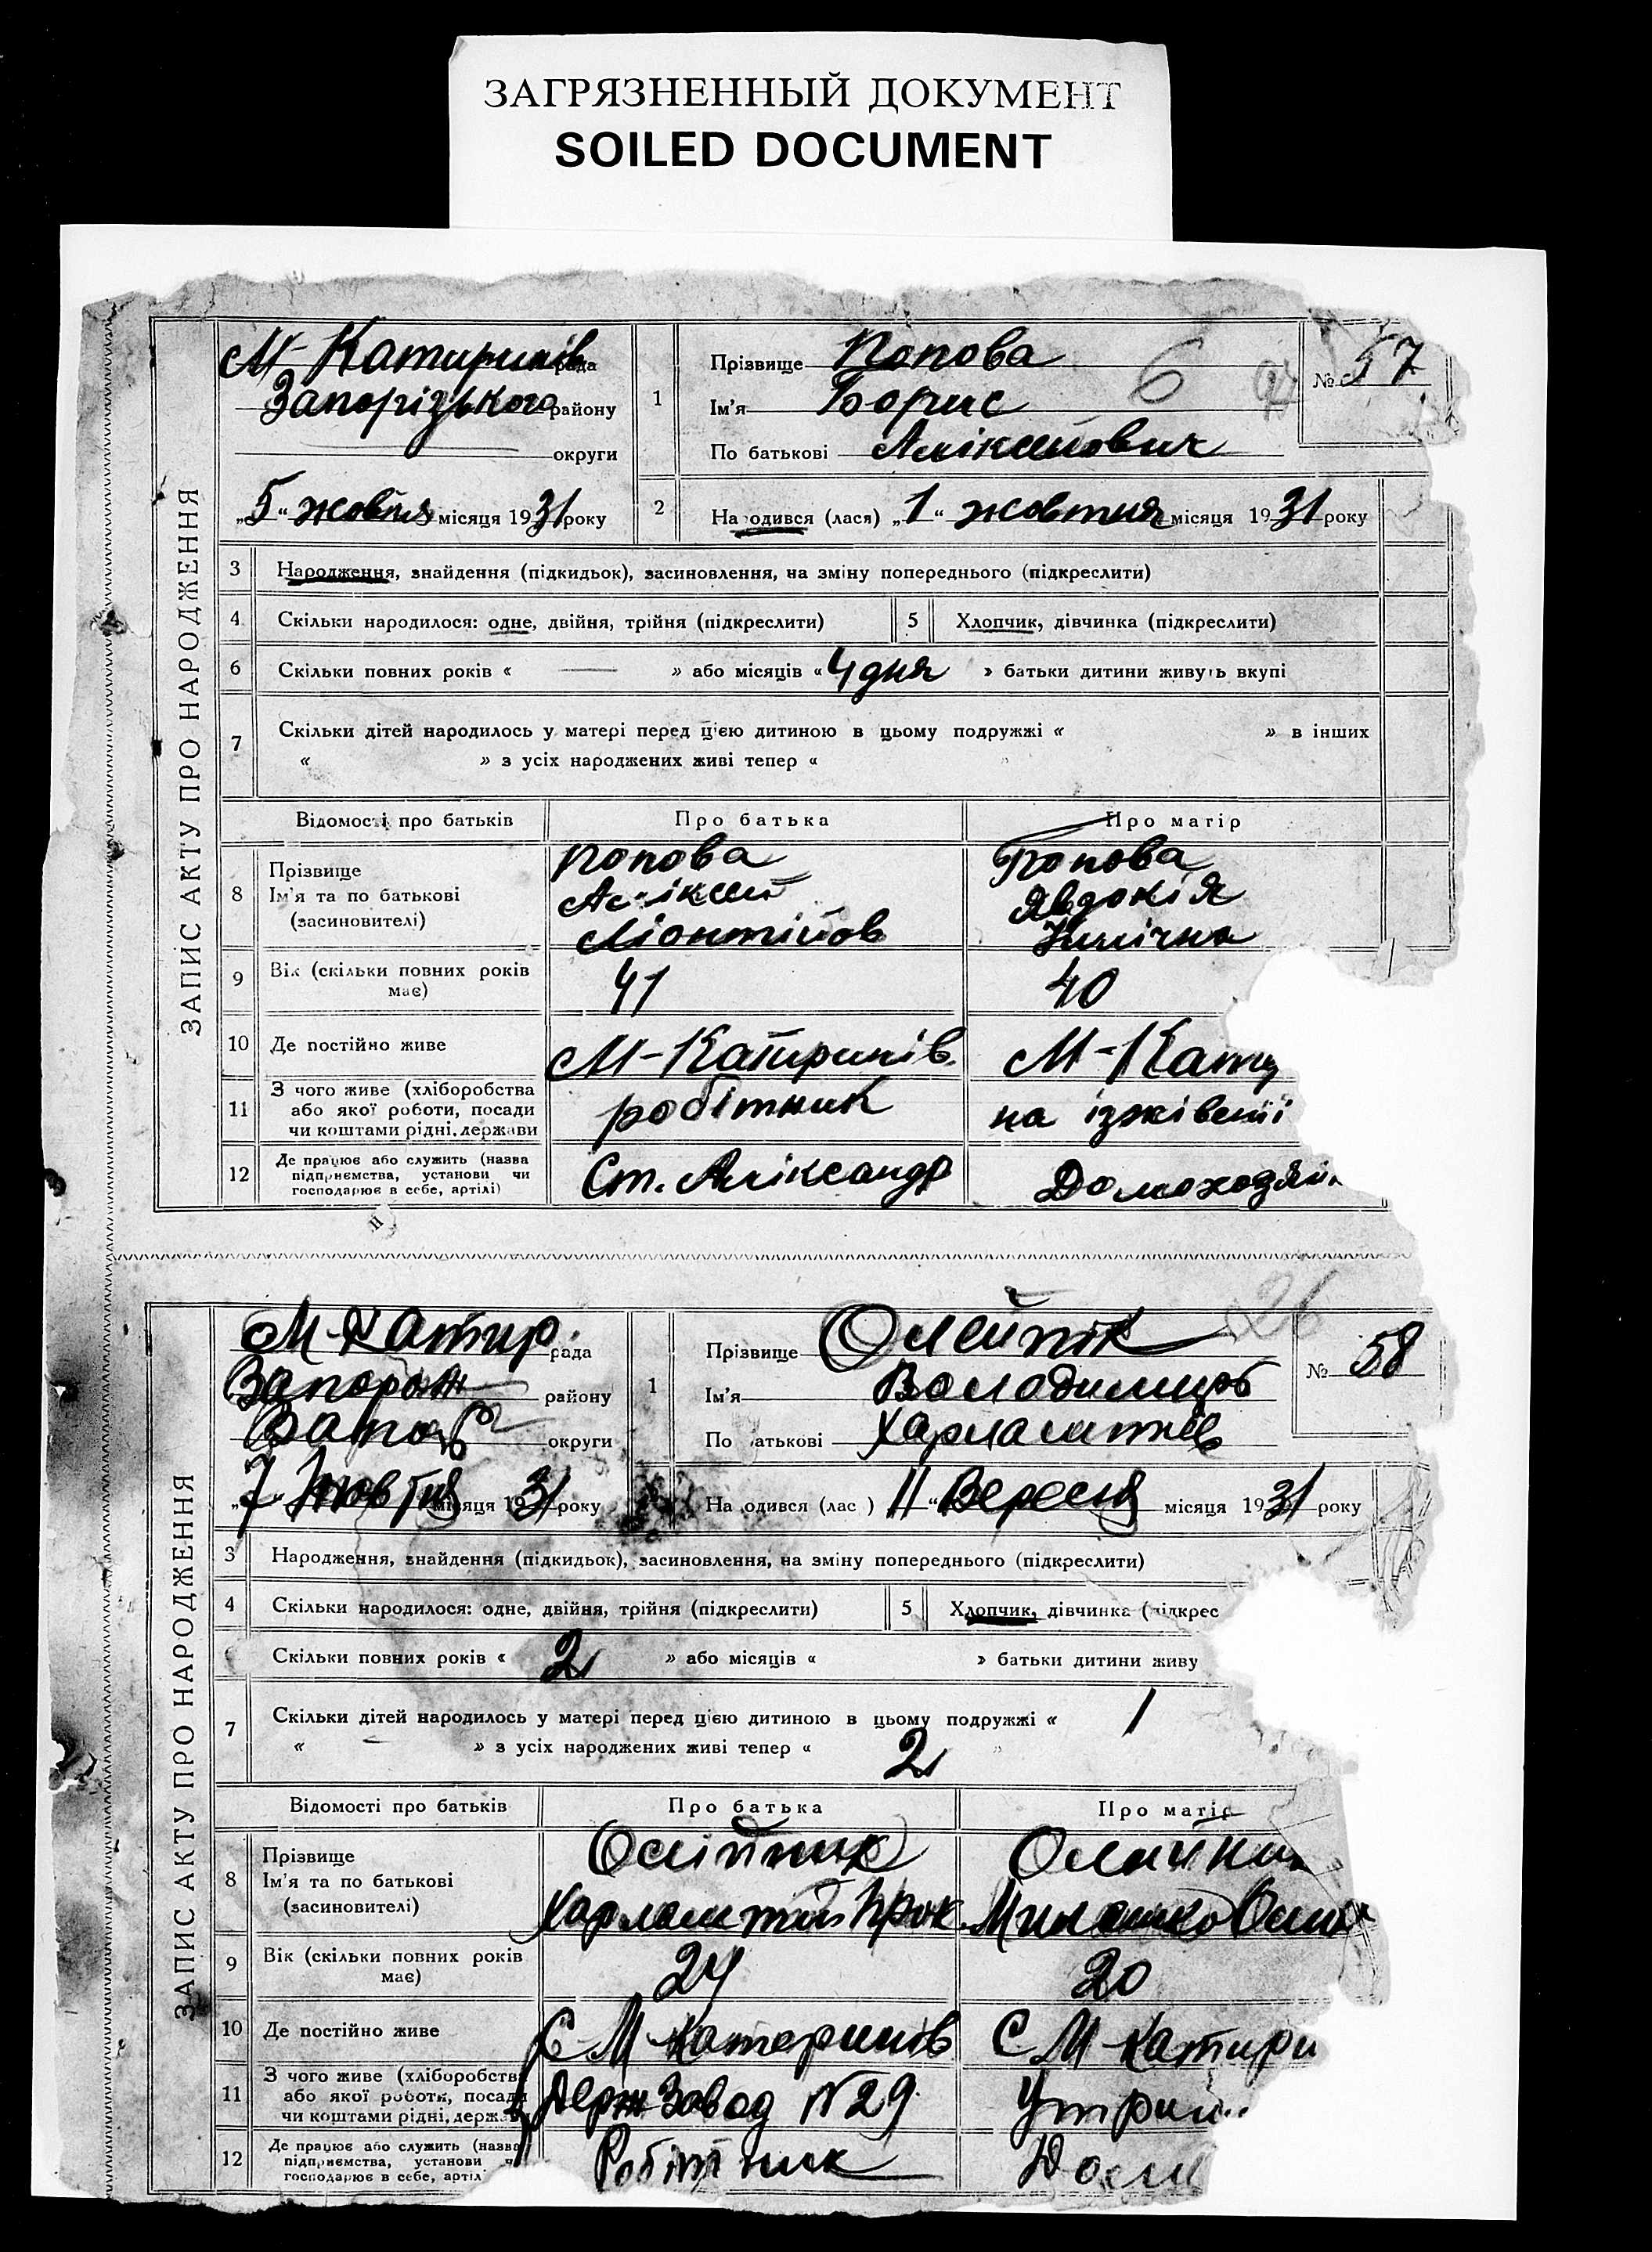 ЗАГРЯЗНЕННЫЙ ДОКУМЕНТ
SOILED DOCUMENT
ЗАПИС АКТУ ПРО НАРОДЖЕННЯ
М-Катиринів рада
Запорізького району
округи
„5“ жовтня місяця 1931 року
1
Прізвище Попова
Ім'я Борис
По батькові Аліксійович
№ 57
6
2
На одився (лася) „1“ жовтня місяця 1931 року
3 Народження, знайдення (підкидьок), засиновлення, на зміну попереднього (підкреслити)
4 Скільки народилося: одне, двійня, трійня (підкреслити) 5 Хлопчик, дівчинка (підкреслити)
6 Скільки повних років « — » або місяців «4 дня » батьки дитини живуть вкупі
7 Скільки дітей народилось у матері перед цією дитиною в цьому подружжі « » в інших
« » з усіх народжених живі тепер «
Відомості про батьків Про батька Про матір
8 Прізвище
Ім'я та по батькові
(засиновителі)
Попова
Аліксій
Ліонтійов
Попова
Явдокія
9 Вік (скільки повних років
має)
41 40
10 Де постійно живе М-Катиринів. М-Кату
11 З чого живе (хліборобства
або якої роботи, посади
чи коштами рідні, держави
робітник на іжівенії
12 Де працює або служить (назва
підприємства, установи чи
господарює в себе, артілі)
Ст. Аліксандр Домоходяйк
ЗАПИС АКТУ ПРО НАРОДЖЕННЯ
М-Катир. рада
Запорож району
округи
„7 Жовтня місяця 1931 року
1
Прізвище Олейнік
Ім'я Володимиръ
По атькові Харлампіев
26
№ 58
На одився (лас ) 11“ Вересня місяця 1931 року
3 Народження, знайдення (підкидьок), засиновлення, на зміну попереднього (підкреслити)
4 Скільки народилося: одне, двійня, трійня (підкреслити) 5 Хлопчик, дівчинка (підкрес
Скільки повних років « 2 » або місяців « » батьки дитини живу
7 Скільки дітей народилось у матері перед цією дитиною в цьому подружжі « 1
« — » з усіх народжених живі тепер « 2
Відомості про батьків Про батька Про матір
8 Прізвище
Ім'я та по батькові
(засиновителі)
Олійник
Харлампій Прок.
Олійник
9 Вік (скільки повних років
має)
24 20
10 Де постійно живе С М-Катеринов С М-Катири
11 З чого живе (хліборобства
або якої роботи, посади
чи коштами рідні, держ
Держ Завод №29 Утрим
12 Де працює або служить (назва
підприємства, установи ч
господарює в себе, артіл
Робітник Дом